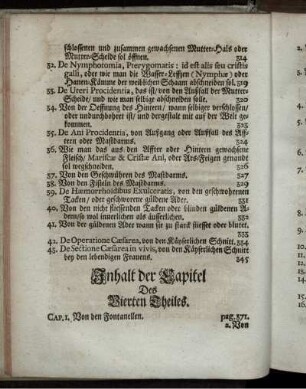 schlossenen und zusammen gewachsenen Mutter-Hals oder
Mutter-Scheide sol öffnen. 314
32. De Nymphotomia, Pterygomatis: id est alis seu cristis
galli, oder wie man die Wasser-Lefftzen (Nymphæ) oder
Hanen-Kämme der weiblichen Schaam abschneiden sol. 319
33. De Uteri Procidentia, das ist/ von den Außfall der Mutter-
Scheide/ und wie man selbige abschneiden solle. 320
34. Von der Oeffnung des Hintern/ wann selbiger verschlossen/
oder undurchbohret ist/ und dergestalt mit auf der Welt ge-
kommen. 323
35. De Ani Procidentia, von Außgang oder Außfall des Aff-
tern oder Mastdarms. 324
36. Wie man das aus den Affter oder Hintern gewachsene
Fleisch/ Mariscæ & Cristæ Ani, oder Ars-Feigen genandt
sol wegschneiden. 326
37. Von den Geschwühren des Mastdarms. 327
38. Von den Fisteln des Mastdarms. 329
39. De Hæmorrhoidibus Exulceratis, von den geschwohrenen
Tacken/ oder geschworene güldene Ader. 331
40. Von den nicht fliessenden Tacken oder blinden güldenen A-
dern/ so wol innerlichen als äusserlichen. 332
41. Von der güldenen Ader wann sie zu starck fliesset oder blutet.
333
42. De Operatione Cæsarea, von den Käyserlichen Schnitt. 334
43. De Sectione Cæsarea in vivis, von den Käyserlichen Schnitt
bey den lebendigen Frauens. 345
Inhalt der Capitel
Des
Vierten Theiles.
CAP. I. Von den Fontanellen. pag. 371.
2. Von